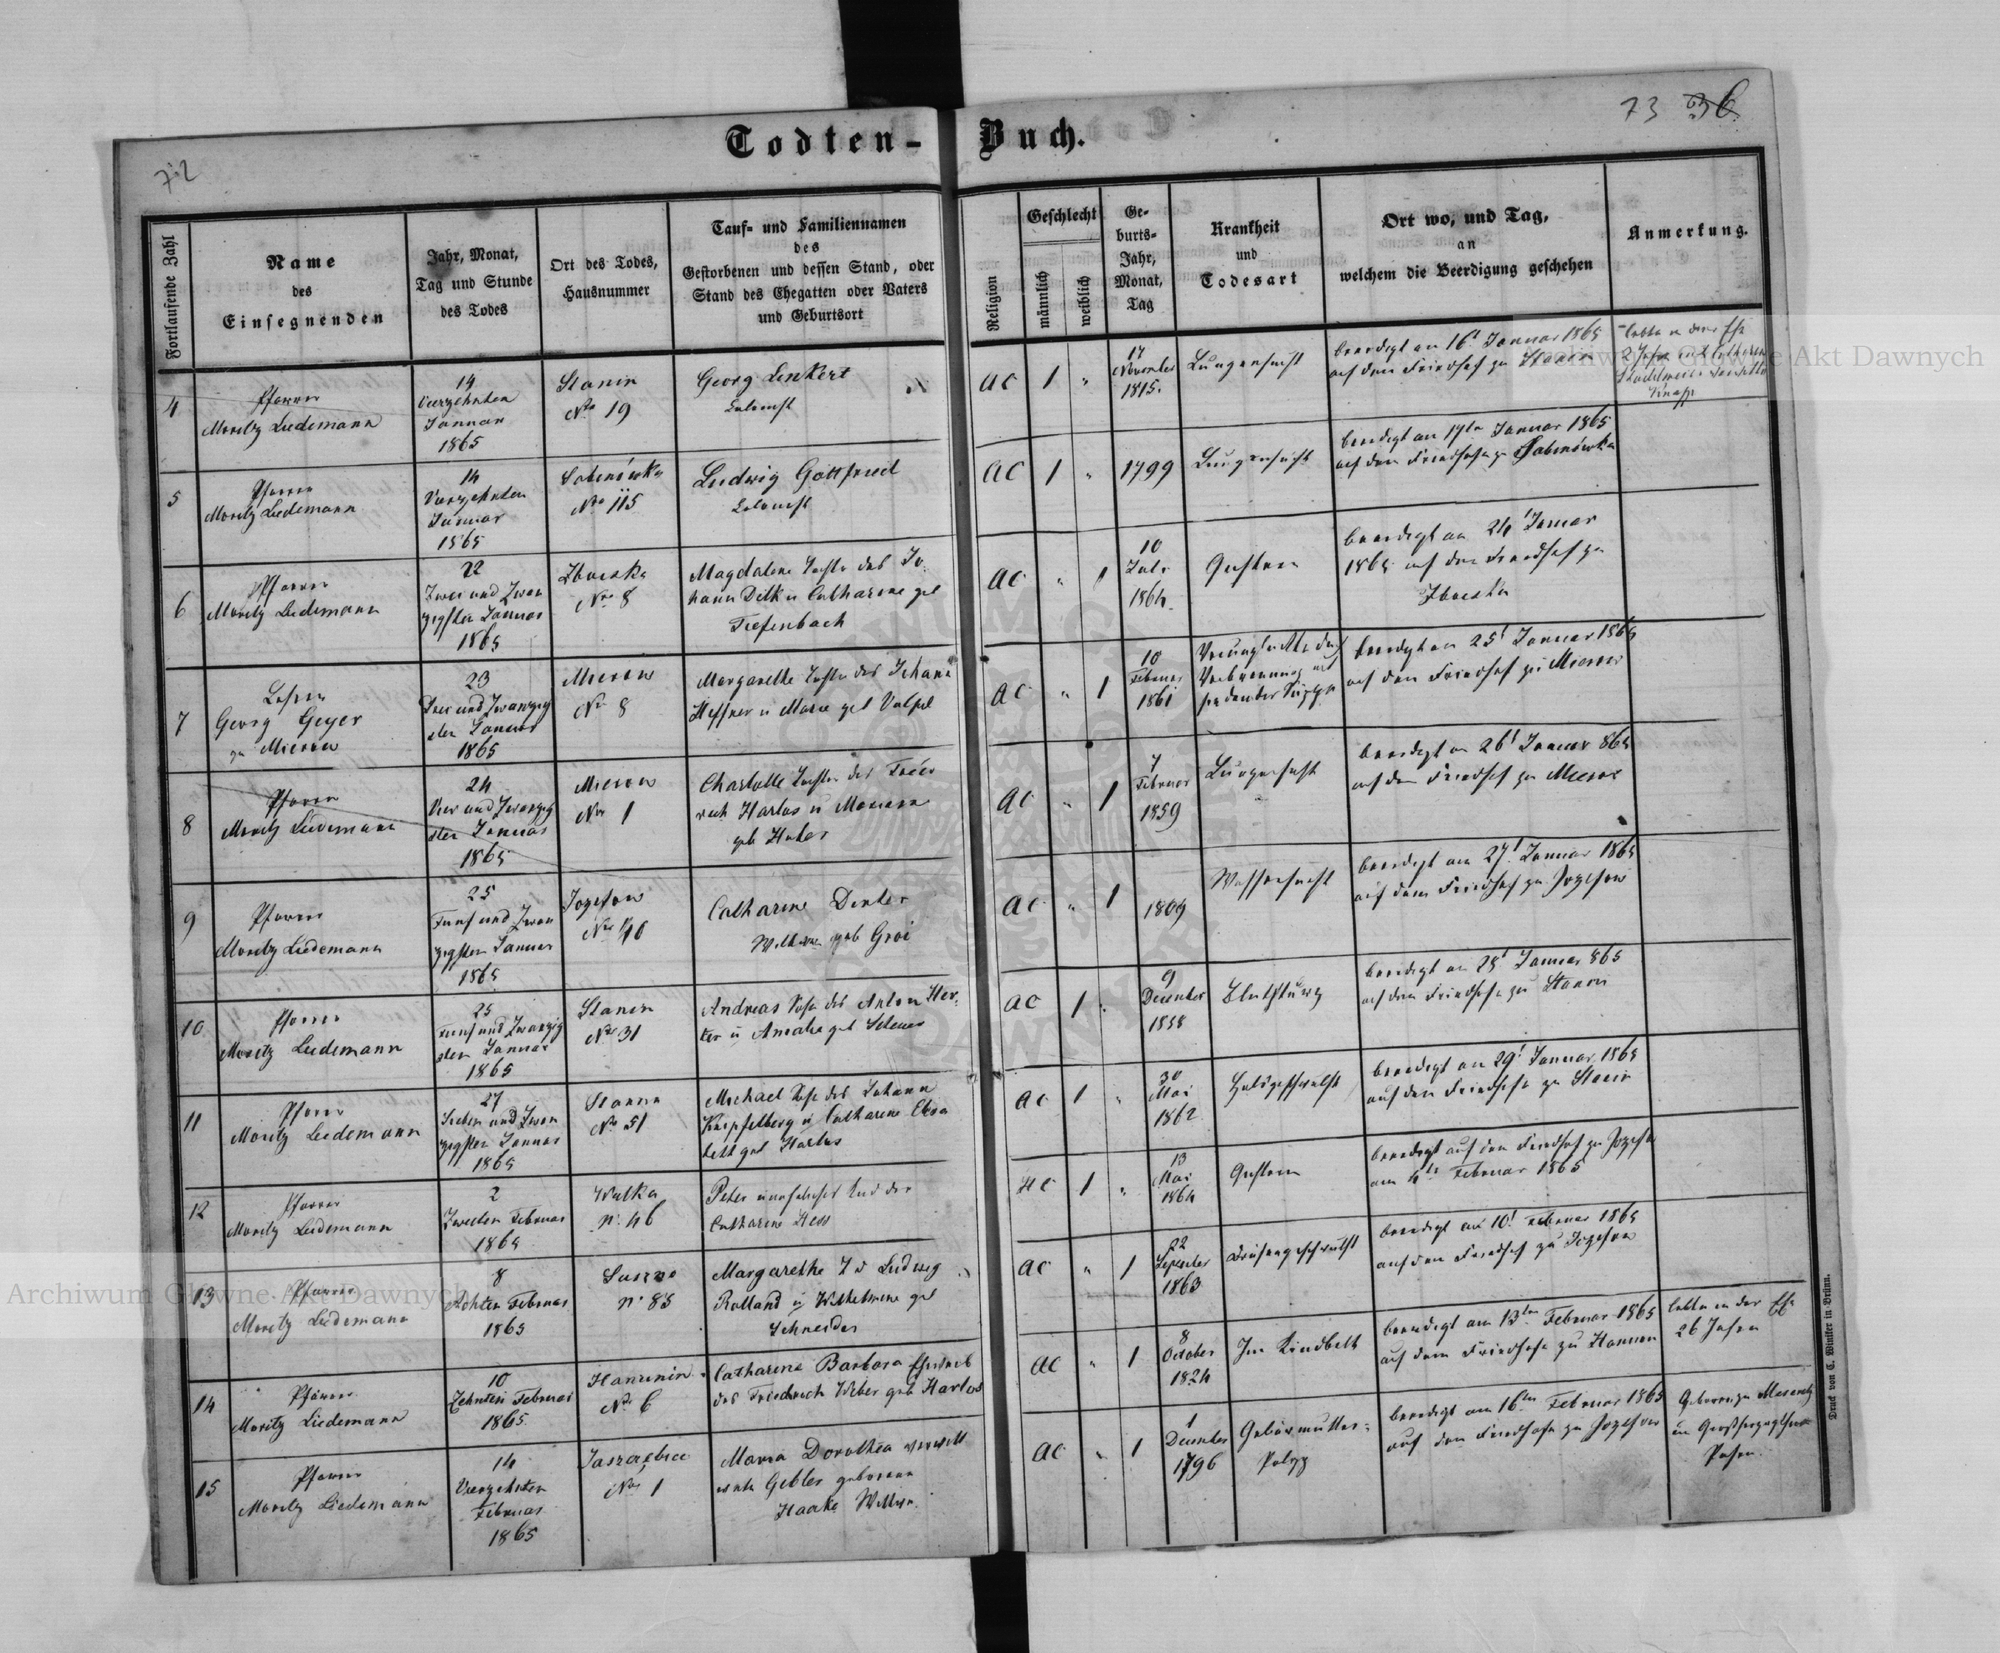 72
73 36
Todten-Buch.
Fortlaufende Zahl
Name
des
Einsegnenden
Jahr, Monat,
Tag und Stunde
des Todes
Ort des Todes,
Hausnummer
Tauf- und Familiennamen
des
Gestorbenen und dessen Stand, oder
Stand des Ehegatten oder Vaters
und Geburtsort
Religion
Geschlecht
männlich
weiblich
Ge-
burts-
Jahr,
Monat,
Tag
Krankheit
und
Todesart
Ort wo, und Tag,
an
welchem die Beerdigung geschehen
Anmerkung.
4
Pfarrer
Moritz Liedemann
14
Vierzehnten
Januar
1865
Stanin
No 19
Georg Lenkert
AC
1
"
17
November
1815.
Lungensucht
beerdigt am 16t Januar 1865
auf dem Friedhof zu Stanin
lebte in der Ehe
5
Pfarrer
Moritz Liedemann
14
Vierzehnten
Januar
1865
Sabinówka
No 115
Ludwig Gottfried
AC
1
"
1799
Lungensucht
beerdigt am 17ten Januar 1865
auf dem Friedhofe zu Sabinówka
6
Pfarrer
Moritz Liedemann
22
Zwei und Zwan
zigsten Januar
1865
Zboiska
No 8
Magdalena Tochter des Jo
hann Dilk u Catharine geb
Tiefenbach
AC
"
1
10
Juli
1864
beerdigt am 24t Januar
1865 auf dem Friedhof zu
Zboiska
7
Lehrer
Georg Geyer
zu Mierow
23
Drei und Zwanzig
sten Januar
1865
Mierow
No 8
Margarethe Tochter des Johann
Heffner u Marie geb Volpel
AC
"
1
10
Februar
1861
Verunglückte durch
Verbrennung mit
siedender Suppe
beerdigt am 25t Januar 1865
auf dem Friedhof zu Mierow
8
Pfarrer
Moritz Liedemann
24
Vier und Zwanzig
sten Januar
1865
Mierow
No 1
Charlotte Tochter des Fried
rich Harlos u Mariana
geb Huber
AC
"
1
7
Februar
1859
Lungensucht
beerdigt am 26t Januar 865
auf dem Friedhof zu Mierow
9
Pfarrer
Moritz Liedemann
25
Fünf und Zwan
zigsten Januar
1865
Jozefow
Catharine Denter
Wittwe geb Groi
AC
"
1
1809
Wassersucht
beerdigt am 27t Januar 1865
auf dem Friedhof zu Jozefow
10
Pfarrer
Moritz Liedemann
25
Fünf und Zwanzig
sten Januar
1865
Stanin
No 31
Andreas Sohn des Anton Her-
ter u Amalie geb Scheuer
AC
1
"
9
December
1858
Blutsturz
beerdigt am 28t Januar 865
auf dem Friedhofe zu Stanin
11
Pfarrer
Moritz Liedemann
27
Sieben und Zwan
zigsten Januar
1865
Stanin
No 51
Michael Sohn des Johann
Kripfelberg u Catharine Elisa
beth geb Harlos
AC
1
"
30
Mai
1862
Halsgeschwulst
beerdigt am 29t Januar 1865
auf dem Friedhofe zu Stanin
12
Pfarrer
Moritz Liedemann
2
Zweiten Februar
1865
Wulka
N. 46
Peter unehelicher Sohn der
Catharine Hess
HC
1
"
13
Mai
1864
beerdigt auf dem Friedhof zu Jozefow
am 4ten Februar 1865
13
Pfarrer
Moritz Liedemann
8
Achten Februar
1865
Suszno
N. 83
Margarethe T d Ludwig
Rolland u Wilhelmine geb
Schneider
AC
"
1
22
September
1863
Drüsengeschwulst
beerdigt am 10t Februar 1865
auf dem Friedhof zu Jozefow
14
Pfarrer
Moritz Liedemann
10
Zehnten Februar
1865
Hanunin
No 6
Catharina Barbara Eheweib
des Friedrich Weber geb Harlos
AC
"
1
8
October
1824
Im Kindbett
beerdigt am 13ten Februar 1865
auf dem Friedhofe zu Hanunin
lebte in der Ehe
26 Jahre
15
Pfarrer
Moritz Liedemann
14
Vierzehnten
Februar
1865
No 1
Maria Dorothea verwitt
wete Gebler geborene
Haake
AC
"
1
1
December
1796
Gebärmutter-
Polyp
beerdigt am 16ten Februar 1865
auf dem Friedhofe zu Jozefow
Geboren zu Meseritz
im Großherzogthum
Posen.
Druck von C. Winiker in Brünn.
Archiwum Główne Akt Dawnych
Archiwum Główne Akt Dawnych